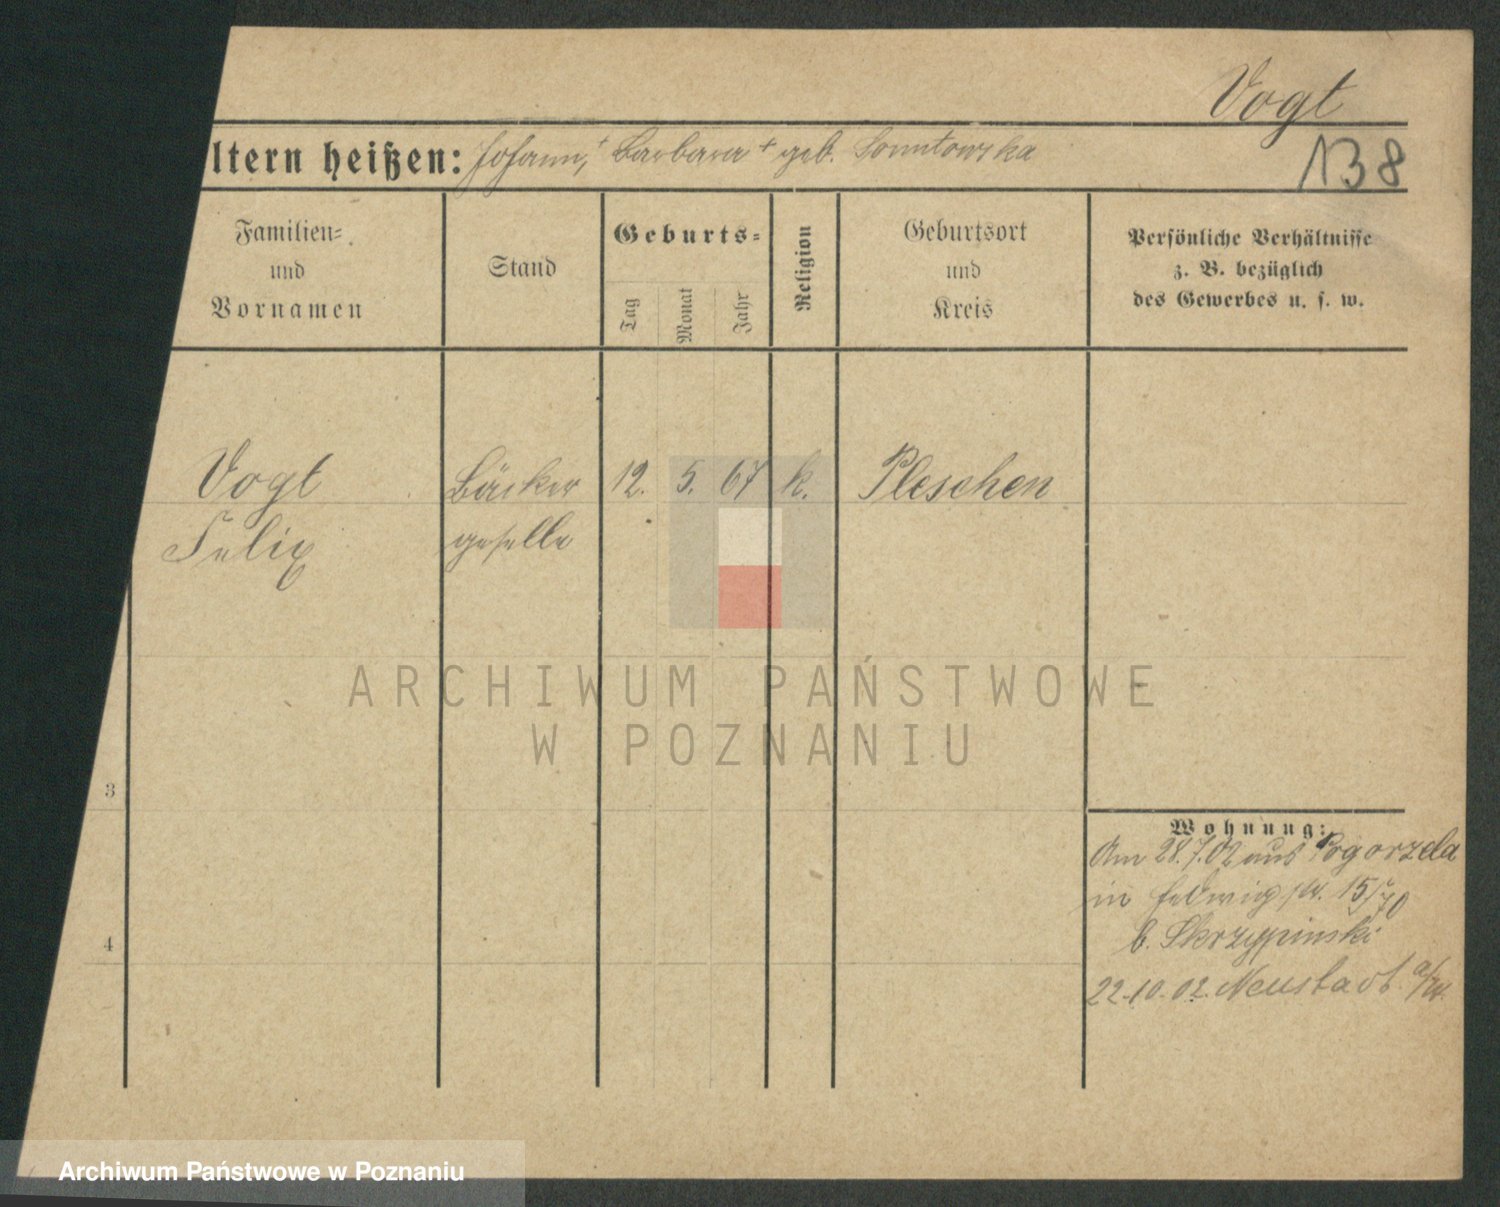 Vogt
138
ltern heißen: Johann,+ Barbara + geb.
Familien=
und
Vornamen
Stand
Geburts=
Tag
Monat
Jahr
Religion
Geburtsort
und
Kreis
Persönliche Verhältnisse
z. B. bezüglich
des Gewerbes u. s. w.
Vogt Bäcker 12. 5. 67 k. Pleschen
Felix geselle
ARCHIWUM PAŃSTWOWE
W POZNANIU
3
Wohnung:
Am 28.7.02 aus Pogorzela
in Hedwigstr. 15/
b. Skrzypinski
4
22.10.02. Neustadt a/W.
Archiwum Państwowe w Poznaniu